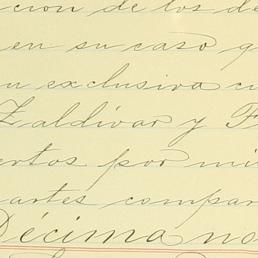 cion de los de
en su caso q
n exclusiva cu
Zaldívar y F
ertos por mi
artes compar
Décima no